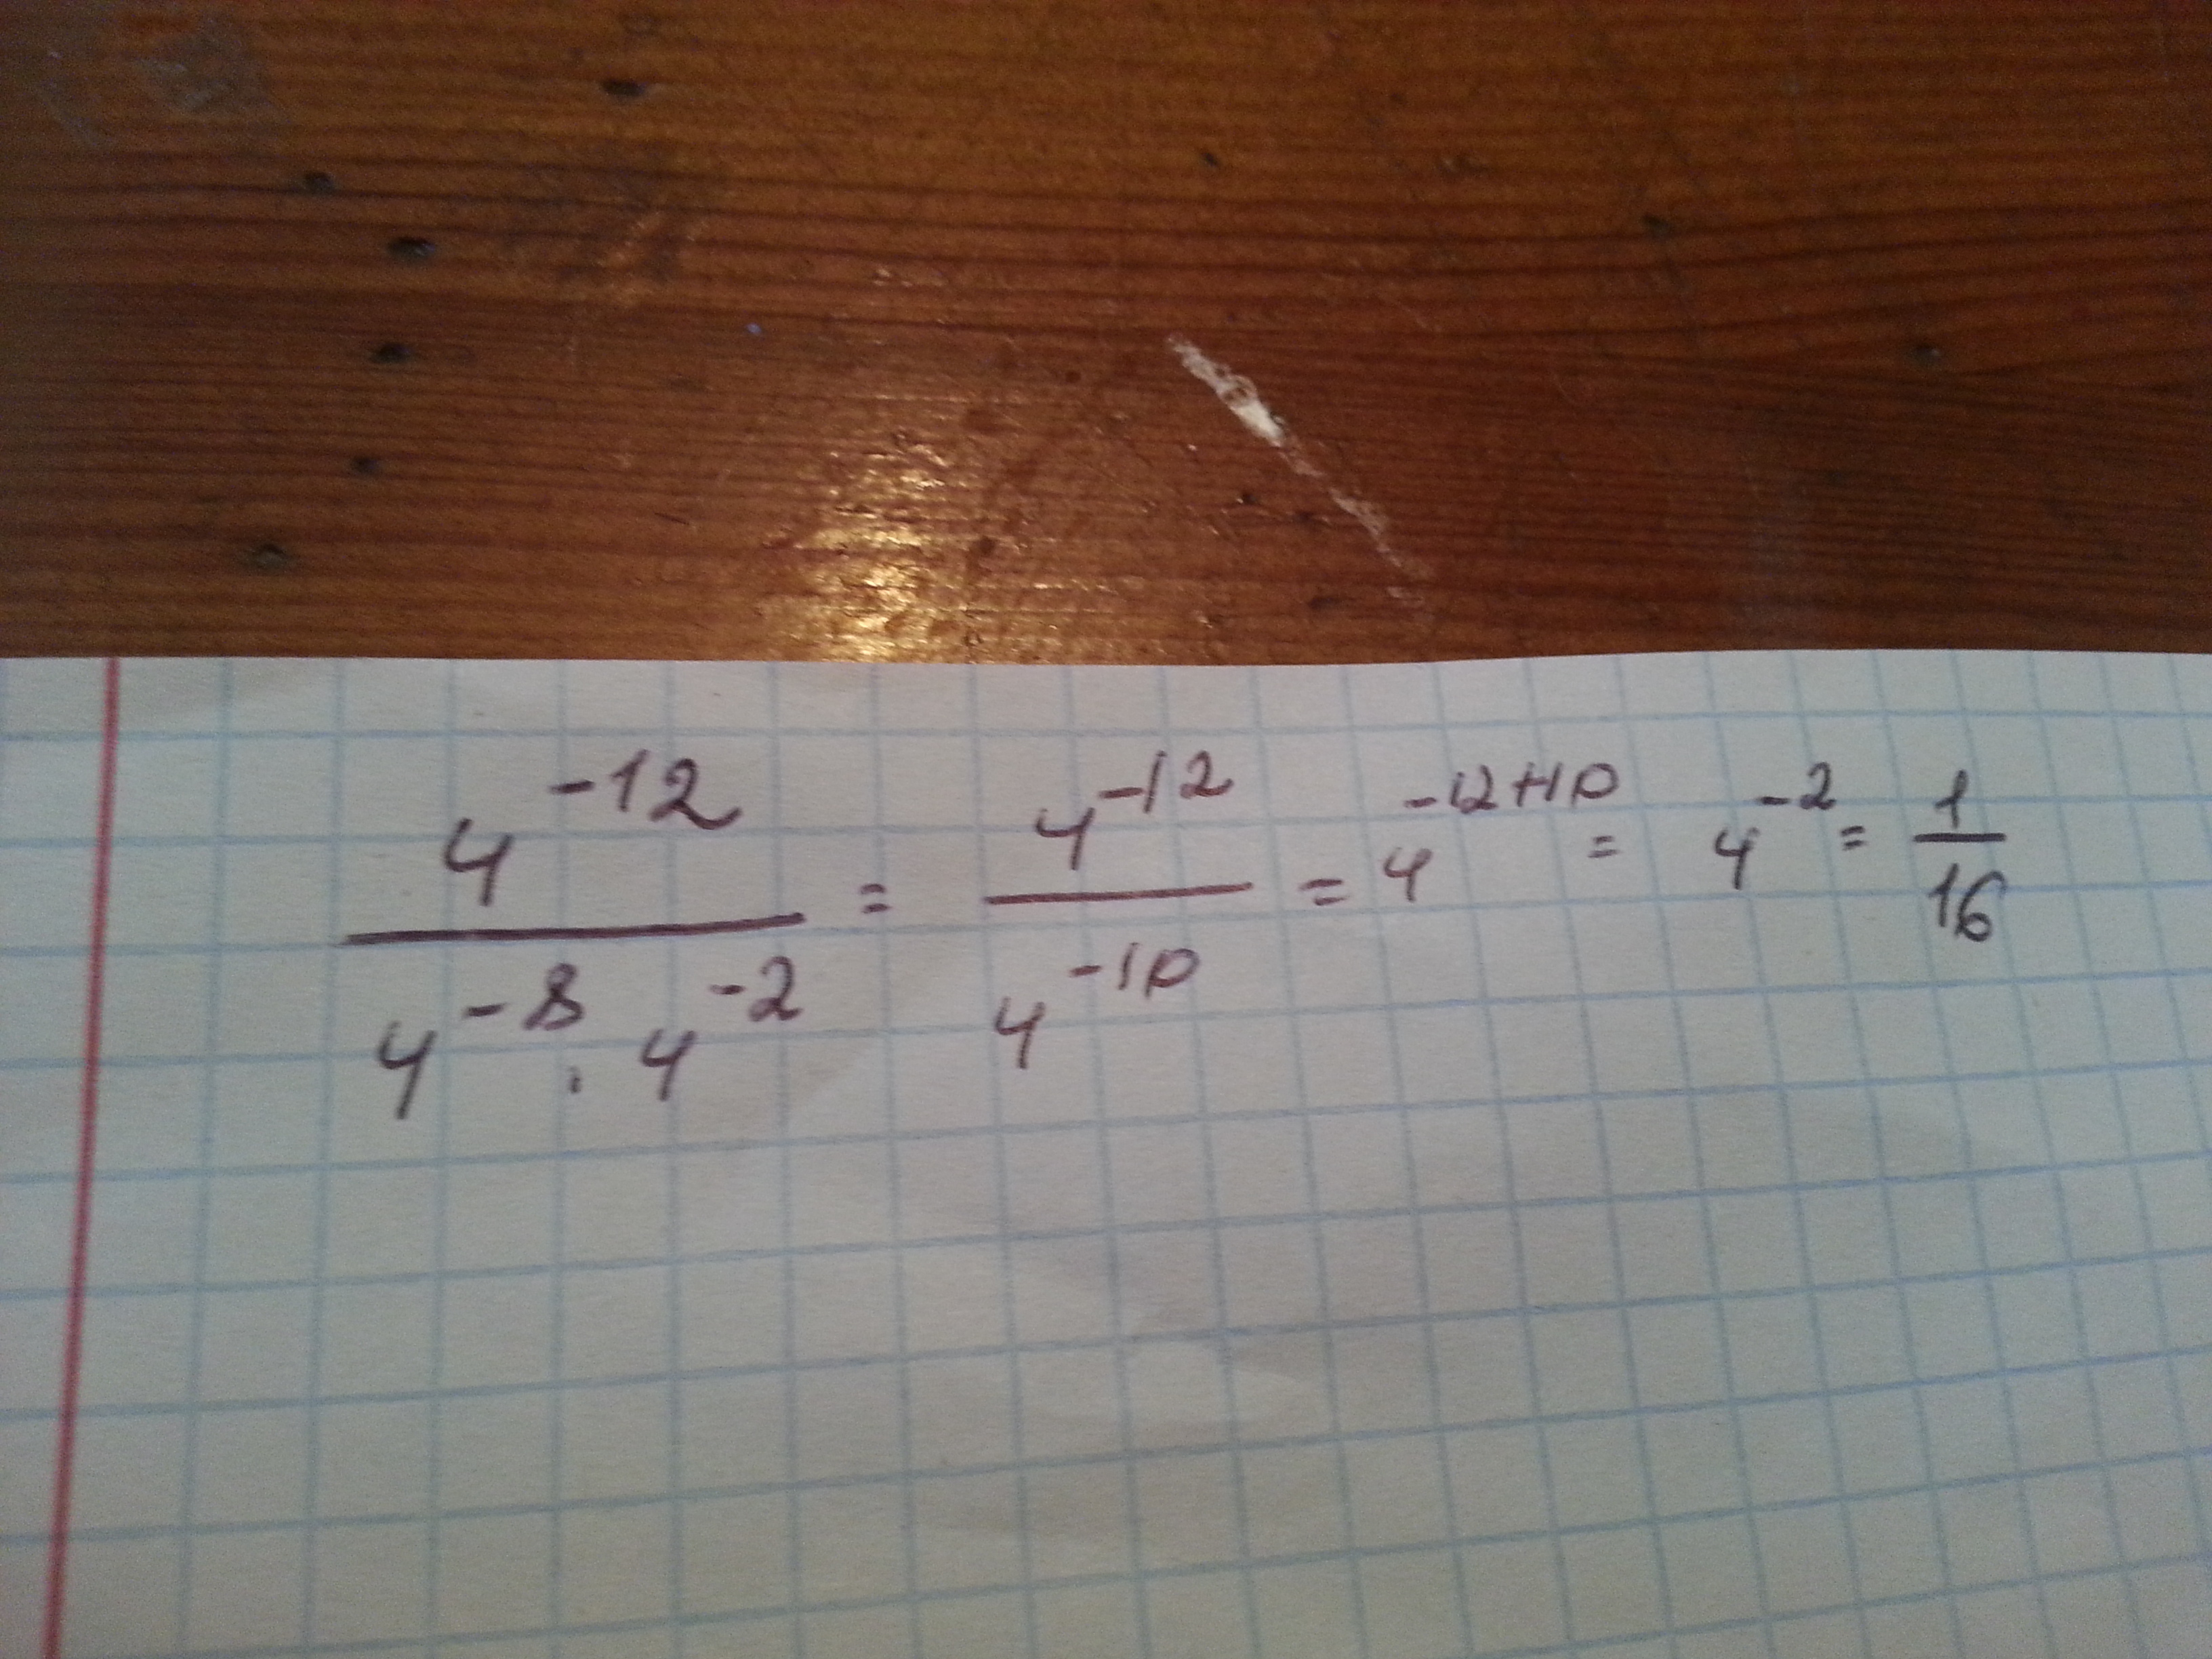 4^{-12} / (4^{-8} · 4^{-2}) = 4^{-12} / 4^{-10} = 4^{-12+10} = 4^{-2} = 1/16